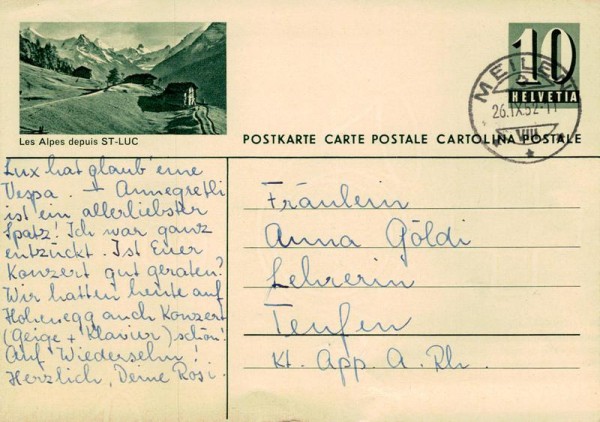 10
HELVETIA
MEILEN
26.IX.52-11
VIII
Les Alpes depuis ST-LUC
POSTKARTE CARTE POSTALE CARTOLINA POSTALE
Lux hat glaub' eine
Vespa. – Annegretli
ist ein allerliebster
Spatz! Ich war ganz
entzückt. Ist Euer
Konzert gut geraten?
Wir hatten heute auf
Hohenegg auch Konzert
(Geige + Klavier) schön!
Auf Wiedersehn!
Herzlich, Deine Rosi.
Fräulein
Anna Göldi
Lehrerin
Teufen
Kt. App. A. Rh.